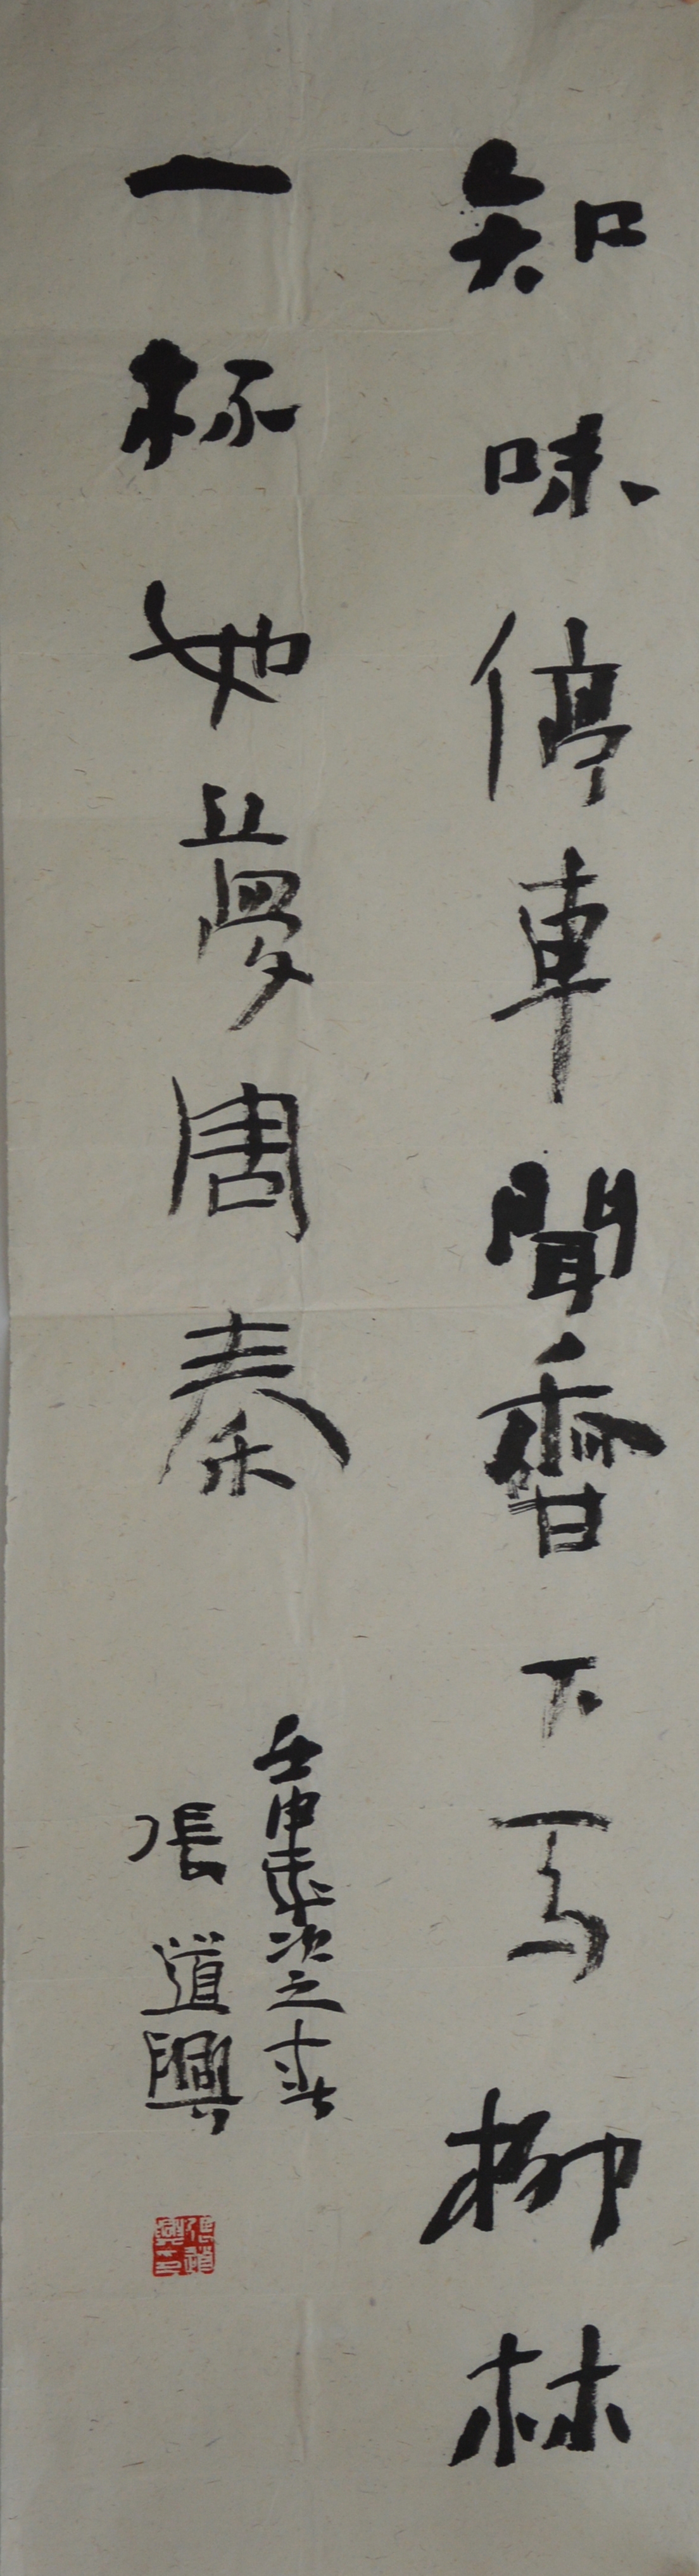 知味停車聞香下馬柳林
一杯如夢周秦
壬申歲次之春
張道興
張道興印